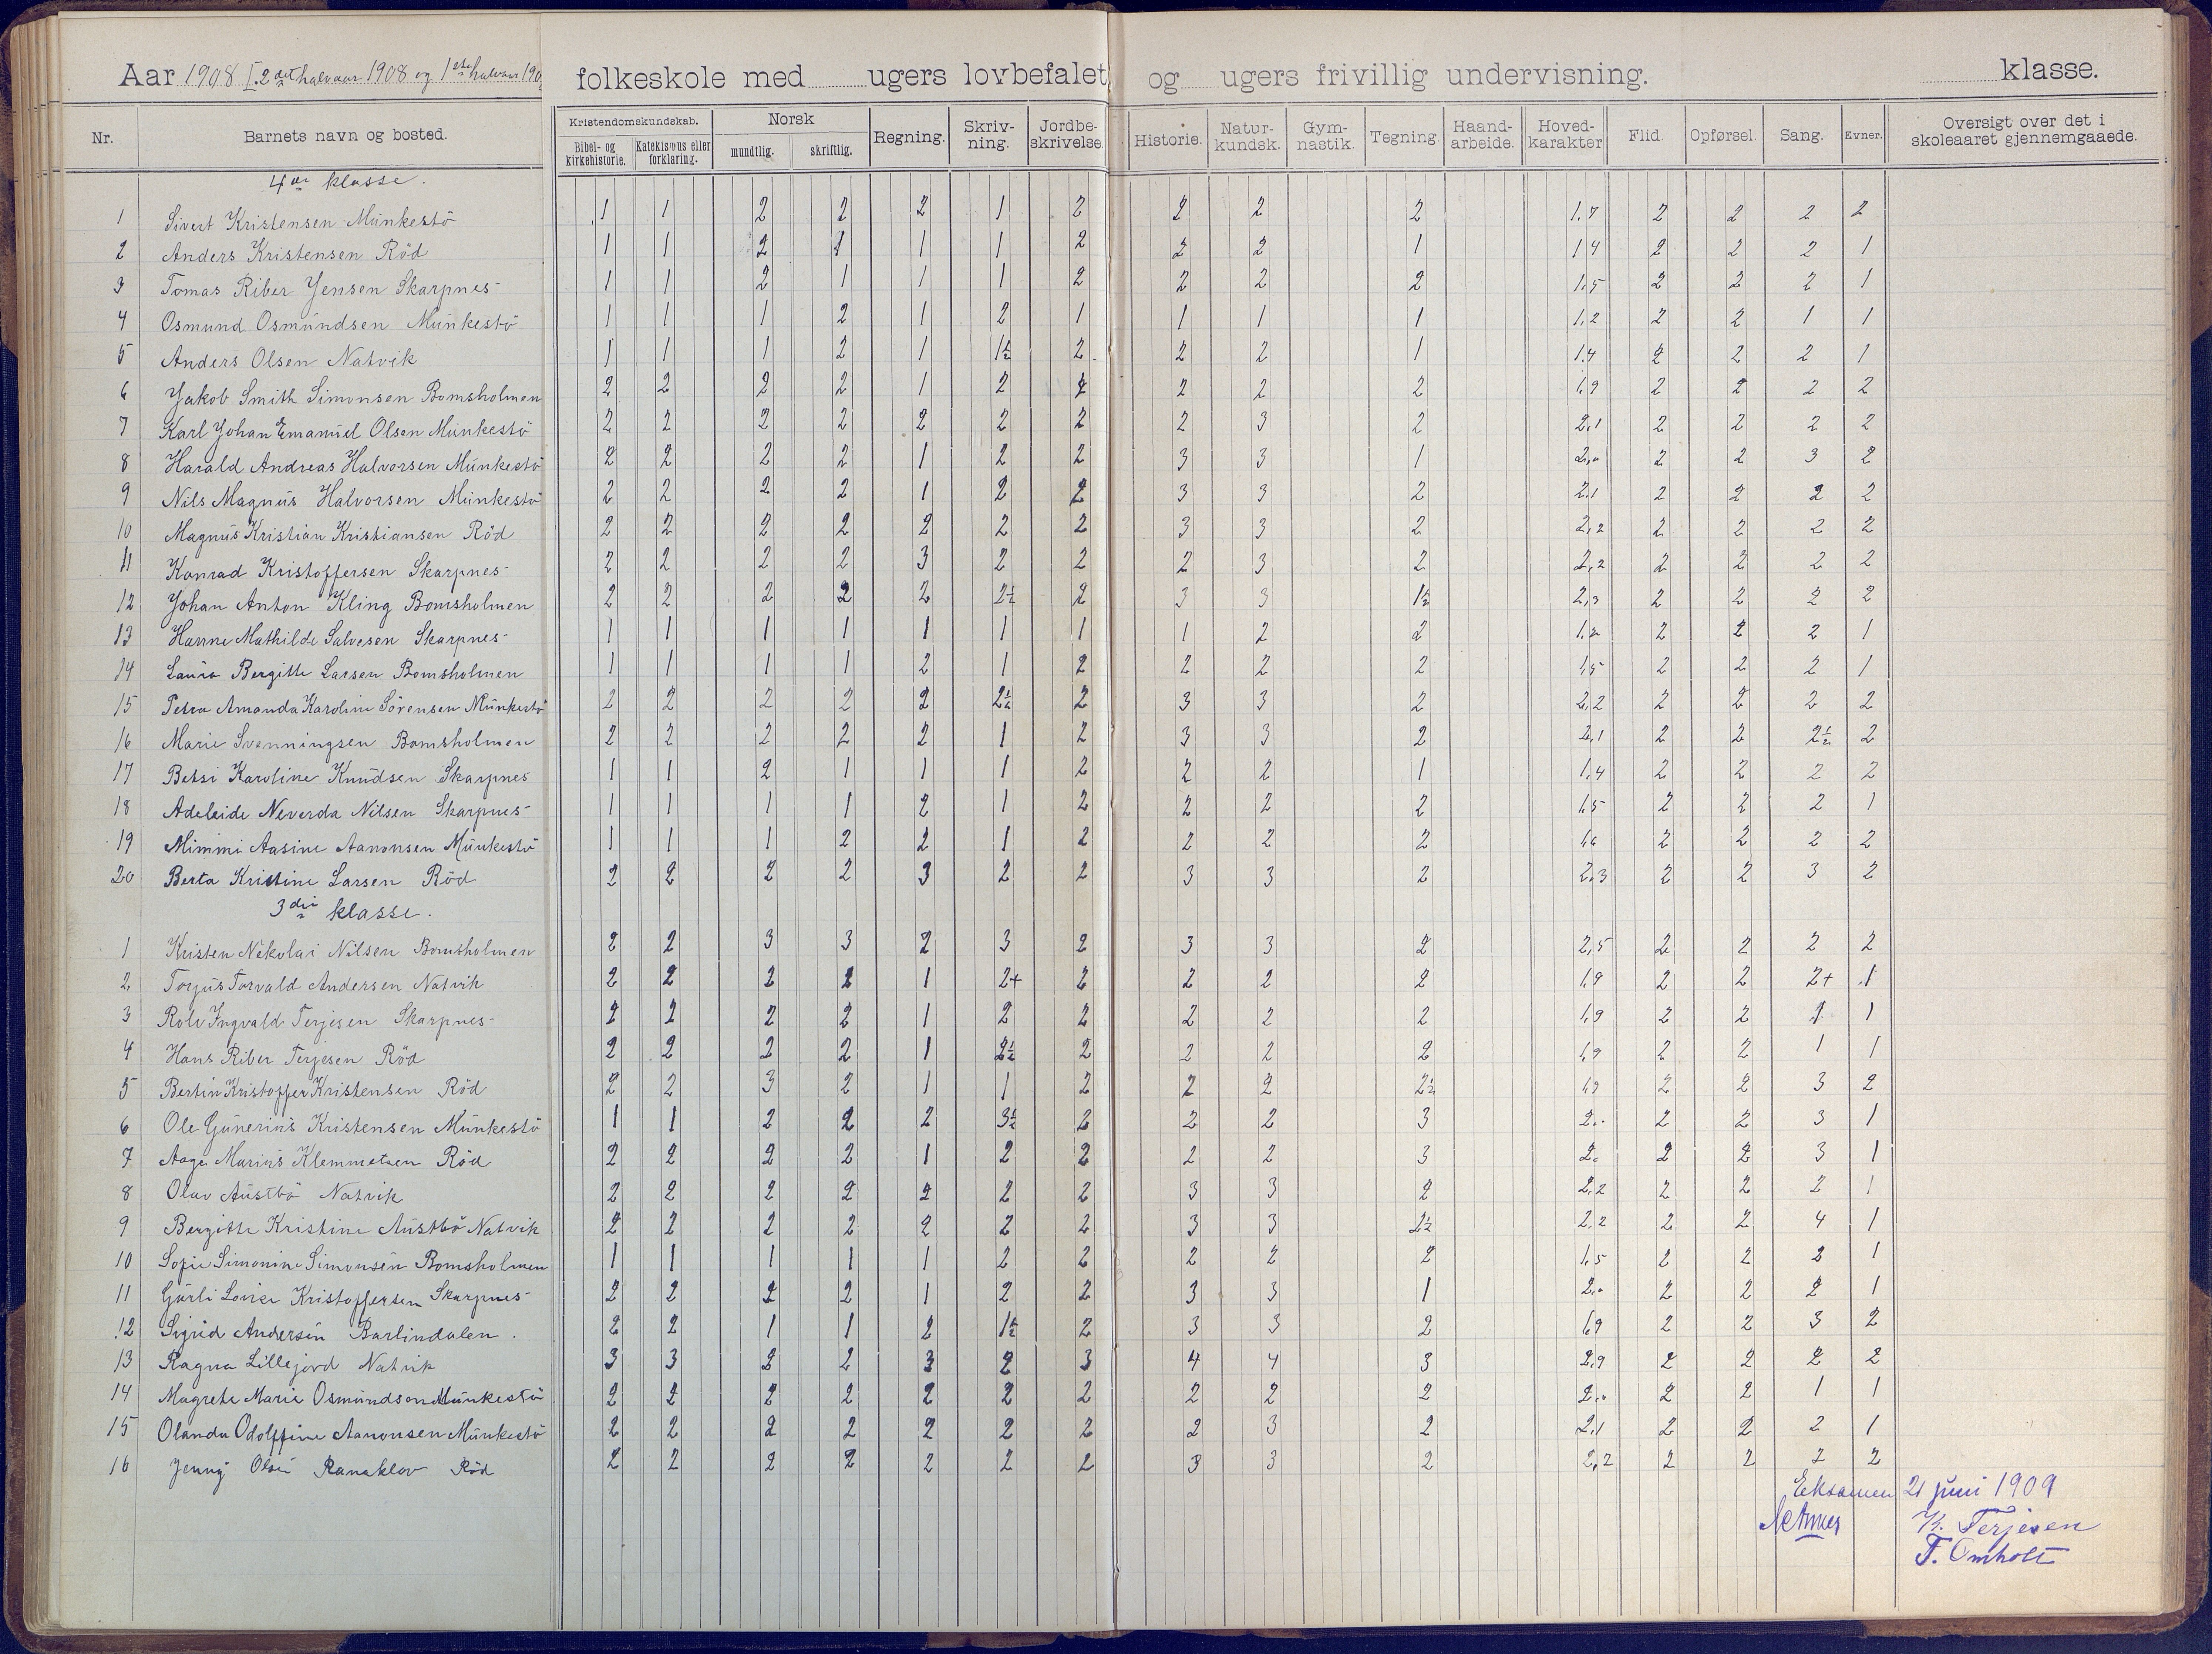 Aar 1908 I. 2det halvaar 1908 og 1ste halvaar 190
folkeskole med ugers lovbefalet og ugers frivillig undervisning. klasse.
Nr. Barnets navn og bosted. Kristendomskundskab. Bibel- og kirkehistorie. Katekismus eller forklaring. Norsk mundtlig. skriftlig. Regning. Skriv-ning. Jordbe-skrivelse. Historie. Natur-kundsk. Gym-nastik. Tegning. Haand-arbeide. Hoved-karakter Flid. Opførsel. Sang. Evner. Oversigt over det i skoleaaret gjennemgaaede.
4de klasse.
1 Sivert Kristensen Munkestö 1 1 2 2 2 1 2 2 2 2 1,7 2 2 2 2
2 Anders Kristensen Röd 1 1 2 1 1 1 2 2 2 1 1,4 2 2 2 1
3 Tomas Riber Jensen Skarpnes 1 1 2 1 1 1 2 2 2 2 1,5 2 2 2 1
4 Osmund Osmundsen Munkestö 1 1 1 2 1 2 1 1 1 1 1,2 2 2 1 1
5 Anders Olsen Natvik 1 1 1 2 1 1½ 2 2 2 1 1,4 2 2 2 1
6 Jakob Smith Simonsen Bomsholmen 2 2 2 2 1 2 2 2 2 2 1,9 2 2 2 2
7 Karl Johan Emanuel Olsen Munkestö 2 2 2 2 2 2 2 2 3 2 2,1 2 2 2 2
8 Harald Andreas Halvorsen Munkestö 2 2 2 2 1 2 2 3 3 1 2,0 2 2 3 2
9 Nils Magnus Halvorsen Munkestö 2 2 2 2 1 2 2 3 3 2 2,1 2 2 2 2
10 Magnus Kristian Kristiansen Röd 2 2 2 2 2 2 2 3 3 2 2,2 2 2 2 2
11 Konrad Kristoffersen Skarpnes 2 2 2 2 3 2 2 2 3 2 2,2 2 2 2 2
12 Johan Anton Kling Bomsholmen 2 2 2 2 2 2½ 2 3 3 1½ 2,3 2 2 2 2
13 Hanne Mathilde Salvesen Skarpnes 1 1 1 1 1 1 1 1 2 2 1,2 2 2 2 1
14 Laura Bergitte Larsen Bomsholmen 1 1 1 1 2 1 2 2 2 2 1,5 2 2 2 1
15 Petra Amanda Karoline Sörensen Munkestö 2 2 2 2 2 2½ 2 3 3 2 2,2 2 2 2 2
16 Marie Svenningsen Bomsholmen 2 2 2 2 2 1 2 3 3 2 2,1 2 2 2½ 2
17 Betsi Karoline Knudsen Skarpnes 1 1 2 1 1 1 2 2 2 1 1,4 2 2 2 2
18 Adeleide Neverda Nilsen Skarpnes 1 1 1 1 2 1 2 2 2 2 1,5 2 2 2 1
19 Mimmi Aasine Aanonsen Munkestö 1 1 1 2 2 1 2 2 2 2 1,6 2 2 2 2
20 Berta Kristine Larsen Röd 2 2 2 2 3 2 2 3 3 2 2,3 2 2 3 2
3die klasse.
1 Kristen Nikolai Nilsen Bomsholmen 2 2 3 3 2 3 2 3 3 2 2,5 2 2 2 2
2 Torjus Torvald Andersen Natvik 2 2 2 2 1 2+ 2 2 2 2 1,9 2 2 2+ 1
3 Rolv Ingvald Terjesen Skarpnes 2 2 2 2 1 2 2 2 2 2 1,9 2 2 1 1
4 Hans Riber Terjesen Röd 2 2 2 2 1 2½ 2 2 2 2 1,9 2 2 1 1
5 Bertin Kristoffer Kristensen Röd 2 2 3 2 1 1 2 2 2 2½ 1,9 2 2 3 2
6 Ole Gunerius Kristensen Munkestö 1 1 2 2 2 3½ 2 2 2 3 2,0 2 2 3 1
7 Aage Marius Klemmetsen Röd 2 2 2 2 1 2 2 2 2 3 2,0 2 2 3 1
8 Olav Austbö Natvik 2 2 2 2 2 2 2 3 3 2 2,2 2 2 2 1
9 Bergitte Kristine Austbö Natvik 2 2 2 2 2 2 2 3 3 2½ 2,2 2 2 4 1
10 Sofie Simonine Simonsen Bomsholmen 1 1 1 1 1 2 2 2 2 2 1,5 2 2 2 1
11 Gurli Lovise Kristoffersen Skarpnes 2 2 2 2 1 2 2 3 3 1 2,0 2 2 2 1
12 Sigrid Andersen Barlindalen 2 2 1 1 2 1½ 2 3 3 2 1,9 2 2 3 2
13 Ragna Lillejord Natvik 3 3 2 2 3 2 3 4 4 3 2,9 2 2 2 2
14 Magrete Marie Osmundsen Munkestö 2 2 2 2 2 2 2 2 2 2 2,0 2 2 1 1
15 Olanda Odolffine Aanonsen Munkestö 2 2 2 2 2 2 2 2 3 2 2,1 2 2 2 1
16 Jenny Olsen Ranaklov Röd 2 2 2 2 2 2 2 3 3 2 2,2 2 2 2 2
Eksamen 21 juni 1909
K. Terjesen
T. Omholt